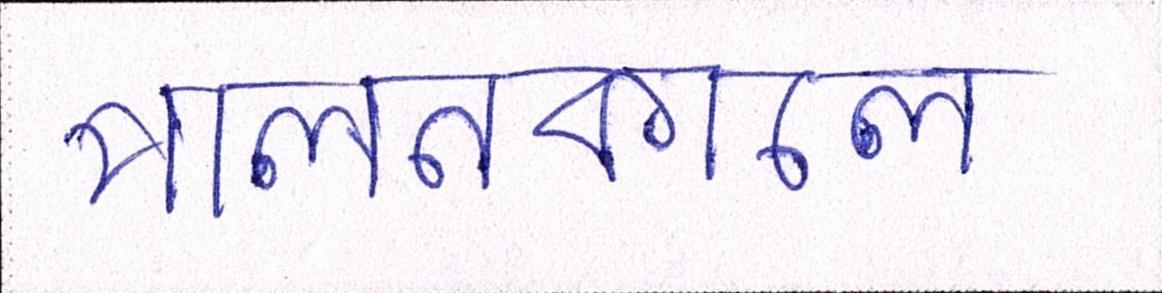 পালনকালে